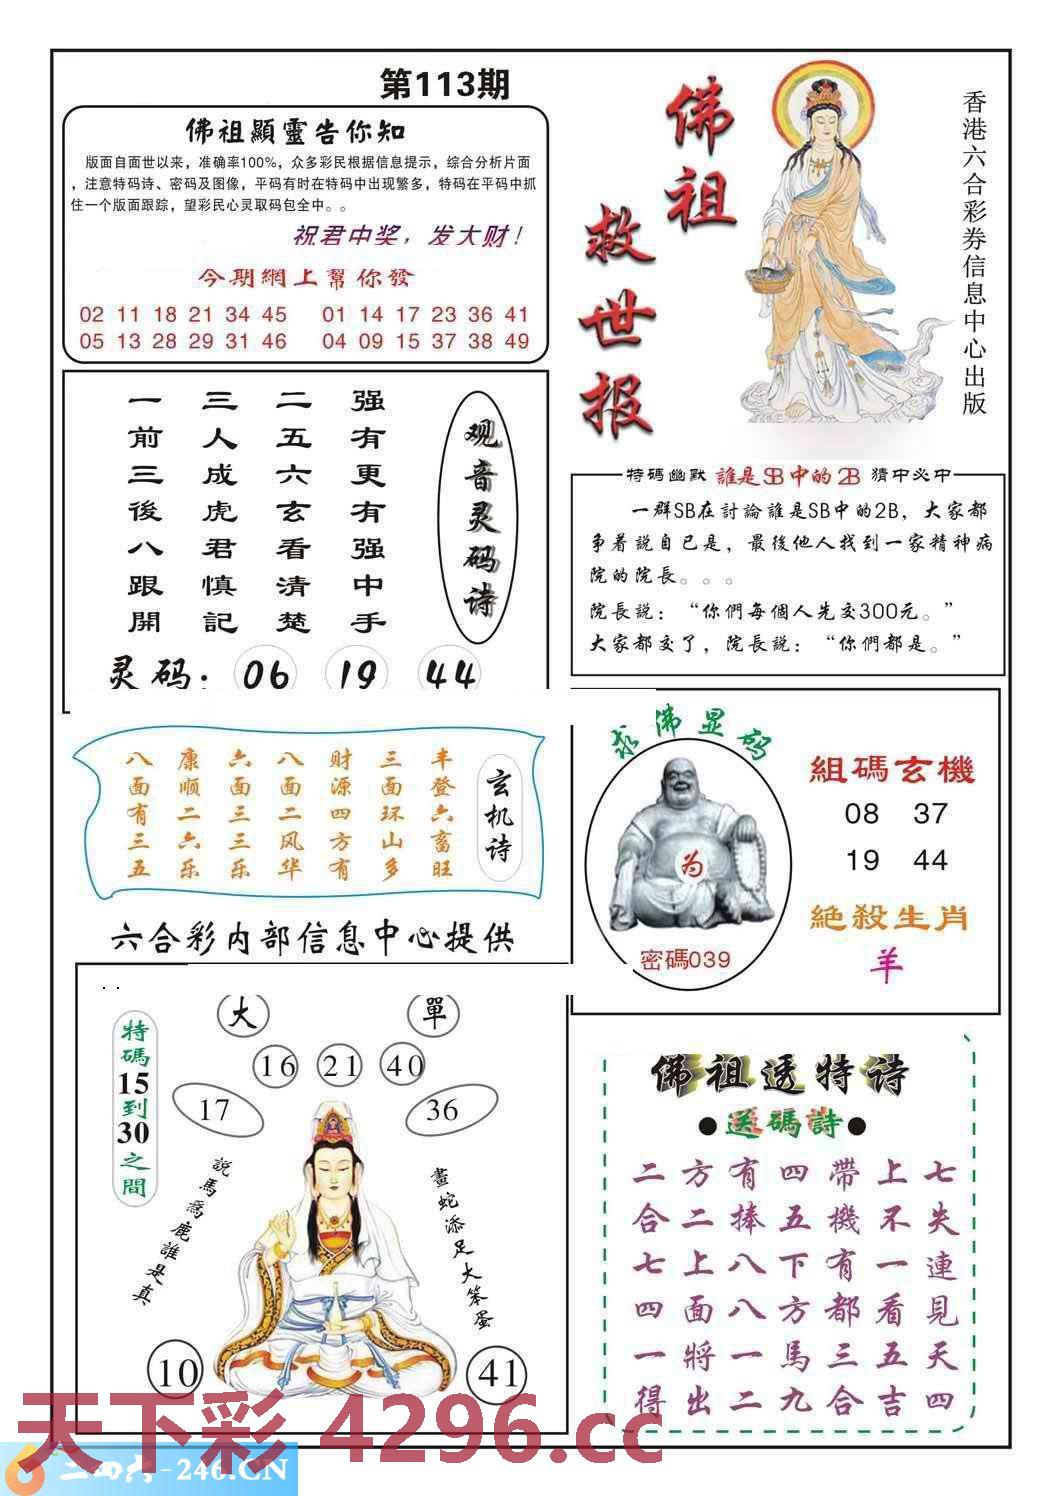 第113期
佛祖顯靈告你知
版面自面世以来，准确率100%，众多彩民根据信息提示，综合分析片面
，注意特码诗、密码及图像，平码有时在特码中出现繁多，特码在平码中抓
住一个版面跟踪，望彩民心灵取码包全中。。
祝君中奖，发大财！
今期網上幫你發
02 11 18 21 34 45 01 14 17 23 36 41
05 13 28 29 31 46 04 09 15 37 38 49
佛祖
救世报
香港六合彩券信息中心出版
观音灵码诗
强有更有强中手
二五六玄看清楚
三人成虎君慎記
一前三後八跟開
灵码：06 19 44
特碼幽默 誰是SB中的2B 猜中必中
一群SB在討論誰是SB中的2B，大家都
争着説自已是，最後他人找到一家精神病
院的院長。。。
院長説：“你們每個人先交300元。”
大家都交了，院長説：“你們都是。”
玄机诗
丰登六畜旺
三面环山多
财源四方有
八面二风华
六面三三乐
康顺二六乐
八面有三五
六合彩内部信息中心提供
求佛显码
为
密碼039
組碼玄機
08 37
19 44
絶殺生肖
羊
特碼15到30之間
大 單
16 21 40
17 36
説馬爲鹿誰是真
畫蛇添足大笨蛋
10 41
佛祖透特诗
●送碼詩●
二方有四帶上七
合二捧五機不失
七上八下有一連
四面八方都看見
一將一馬三五天
得出二九合吉四
天下彩 4296.cc
二四六-246.CN